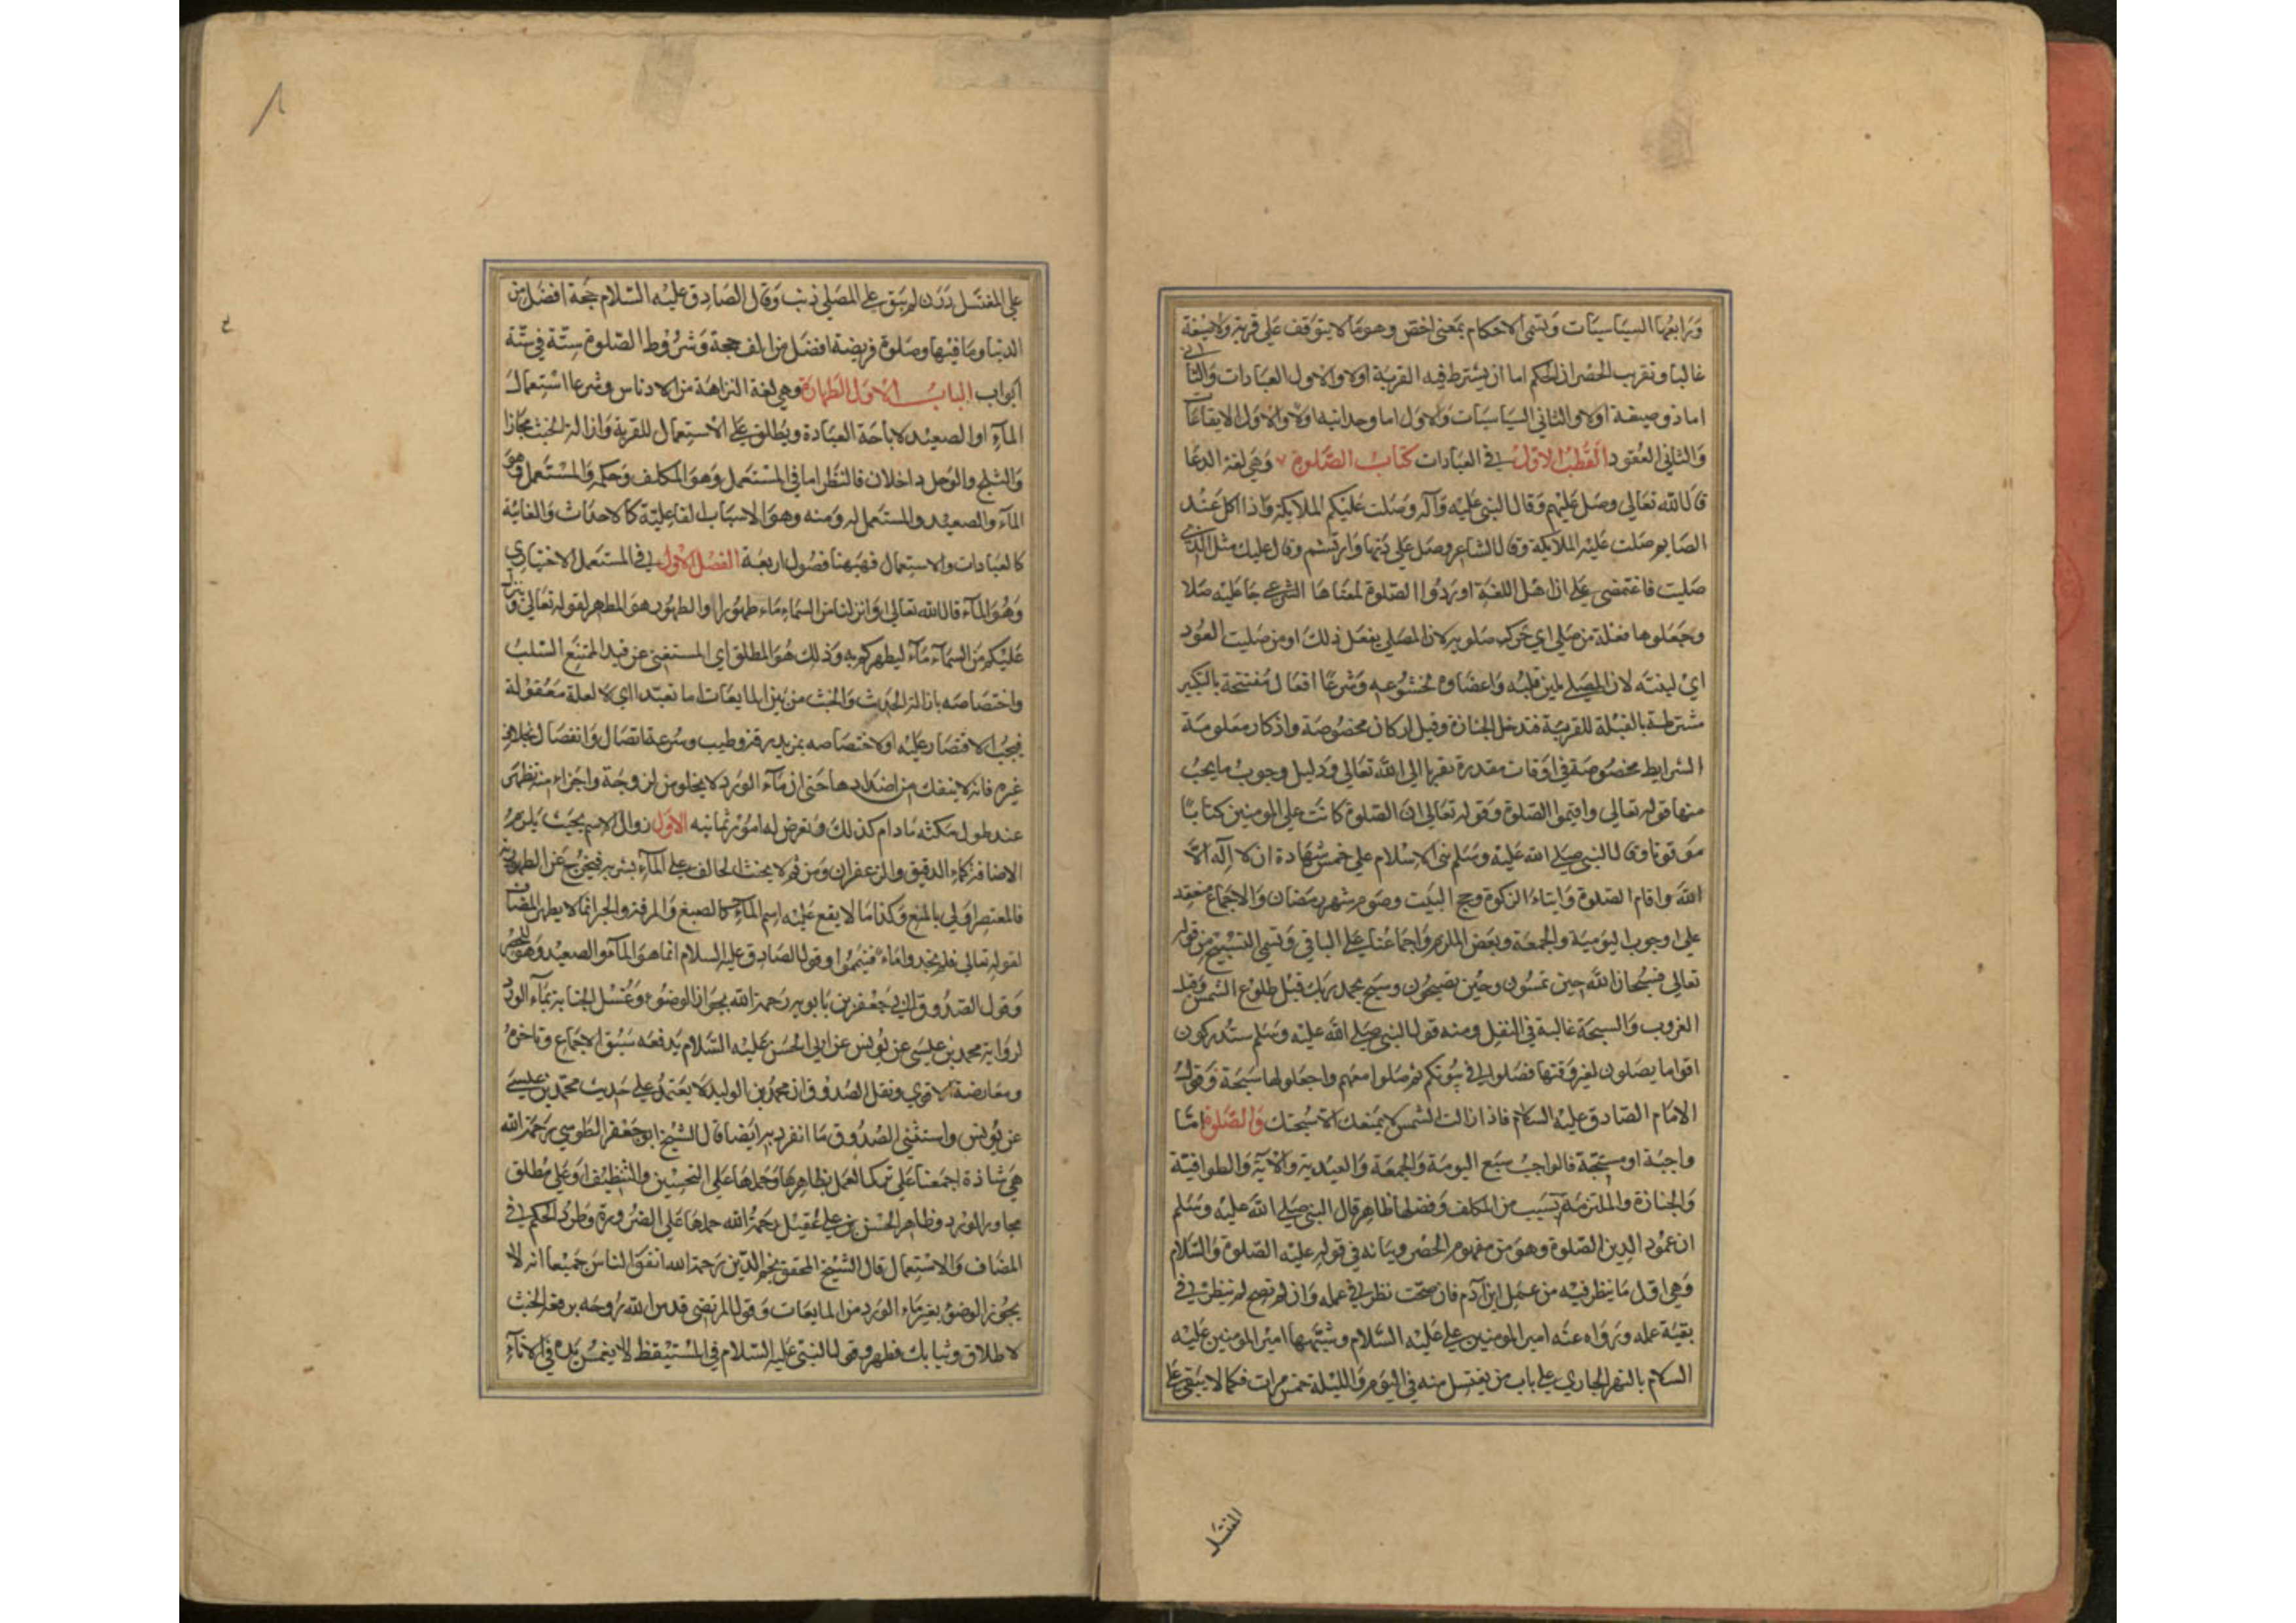 ورابعها السياسيات وتسمى الاحكام بمعنى اخص وهو ما لا يتوقف على قربة ولا صيغة
غالبا وتقريب الحصر ان الحكم اما ان يشترط فيه القربة اولا والاول العبادات والثاني
اما ذو صيغة اولا والثاني السياسيات والاول اما وحدانيه اولا والاول الايقاعات
والثاني العقود القطب الاول في العبادات كتاب الصلوة وهي لغة الدعا
قال الله تعالى وصل عليهم وقال النبي عليه وآله وصلت عليكم الملايكة واذا اكل عند
الصايم صلت عليه الملايكة وقال الشاعر وصل على دنها وارتسم وقال عليك مثل الذي
صليت فاغتمضي على ان اهل اللغة اوردوا الصلوة لمعناها الشرعي جاعليه صلا
وجعلوها فعلة من صلى اي حرك صلويه لان المصلي يفعل ذلك او من صليت العود
اي لينته لان المصلي يلين قلبه واعضاوه بخشوعه وشرعا افعال مفتتحة بالتكبير
مشترطة بالقبلة للقربة فتدخل الجنازة وقيل اركان مخصوصة واذكار معلومة
الشرايط مخصوصة في اوقات مقدرة تقربا الى الله تعالى ودليل وجوب ما يجب
منها قوله تعالى واقيموا الصلوة وقوله تعالى ان الصلوة كانت على المومنين كتابا
موقوتا وقال النبي صلى الله عليه وسلم بنى الاسلام على خمس شهادة ان لا اله الا
الله واقام الصلوة وايتاء الزكوة وحج البيت وصوم شهر رمضان والاجماع منعقد
على وجوب اليومية والجمعة وبعض الملزم واجماعنا على الباقي وتسمى التسبيح من قوله
تعالى فسبحان الله حين تمسون وحين تصبحون وسبح بحمد ربك قبل طلوع الشمس وقبل
الغروب والسبحة غالبة في النفل ومنه قول النبي صلى الله عليه وسلم ستدركون
اقواما يصلون لغير وقتها فصلوا في بيوتكم ثم صلوا معهم واجعلوها سبحة وقول
الامام الصادق عليه السلام فاذا زالت الشمس لا يمنعك الا سبحتك والصلوة اما
واجبة او مستحبة فالواجب سبع اليومية والجمعة والعيدية والآية والطوافية
والجنازة والملتزمة بسبب من المكلف وفضلها ظاهر قال النبي صلى الله عليه وسلم
ان عمود الدين الصلوة وهو من مفهوم الحصر وبيانه في قوله عليه الصلوة والسلام
وهي اول ما ينظر فيه من عمل ابن آدم فان صحت نظر في عمله وان لم تصح لم ينظر في
بقية عمله ورواه عنه امير المومنين علي عليه السلام وشبهها امير المومنين عليه
السلام بالنهر الجاري على باب من يغتسل منه في اليوم والليلة خمس مرات فكما لا يبقى على
المغتسل
على المغتسل درن لم يبق على المصلي ذنب وقال الصادق عليه السلام حجة افضل من
الدنيا وما فيها وصلوة فريضة افضل من الف حجة وشروط الصلوة ستة في ستة
ابواب الباب الاول الطهارة وهي لغة النزاهة من الادناس وشرعا استعمال
المآء او الصعيد لاباحة العبادة ويطلق على الاستعمال للقربة وازالة الخبث مجازا
والثلج والوحل داخلان فالنظر اما في المستعمل وهو المكلف وحكمه والمستعمل وهو
المآء والصعيد والمستعمل له ومنه وهو الاسباب الفاعلية كالاحداث والغاية
كالعبادات والاستعمال فههنا فصول اربعة الفصل الاول في المستعمل الاختياري
وهو المآء قال الله تعالى وانزلنا من السماء ماء طهورا والطهور هو المطهر لقوله تعالى وينزل
عليكم من السمآء مآء ليطهركم به وذلك هو المطلق اي المستغنى عن قيد الممتنع السلب
واختصاصه بازالة الحدث والخبث من بين المايعات اما تعبدا اي لا لعلة معقولة
فيجب الاقتصار عليه او لاختصاصه بمزيد رقة وطيب وسرعة اتصال وانفصال بخلاف
غيره فانه لا ينفك من اضدادها حتى ان مآء الورد لا يخلو من لزوجة واجزاء منه تظهر
عند طول مكثه ما دام كذلك وتعرض له امور ثمانيه الاول زوال الاسم بحيث يلزمه
الاضافة كماء الدقيق والزعفران ومن ثم لا يحنث الحالف على المآء بشربه فيخرج عن الطهورية
فالمعتصر اولى بالمنع وكذا ما لا يقع عليه اسم المآء كالصبغ والمرقة والحبر انما لا يطهر المضاف
لقوله تعالى فلم تجدوا ماء فتيمموا وقول الصادق عليه السلام انما هو المآء والصعيد وهو للحصر
وقول الصدوق ابي جعفر بن بابويه رحمة الله بجواز الوضوء وغسل الجنابة بمآء الورد
لرواية محمد بن عيسى عن يونس عن ابي الحسن عليه السلام يدفعه سبق الاجماع وتاخره
ومعارضة الاقوى ونقل الصدوق ان محمد بن الوليد لا يعتمد على حديث محمد بن عيسى
عن يونس واستثنى الصدوق ما انفرد به ايضا قال الشيخ ابو جعفر الطوسي رحمة الله
هي شاذة اجمعنا على ترك العمل بظاهرها وحملها على التحسين والتنظيف او على مطلق
مجاور الورد وظاهر الحسن بن علي عقيل رحمة الله حملها على الضرورة وطرد الحكم في
المضاف والاستعمال قال الشيخ المحقق نجم الدين رحمة الله اتفق الناس جميعا انه لا
يجوز الوضوء بغير ماء الورد من المايعات وقول المرتضى قدس الله روحه برفعه الخبث
لاطلاق وثيابك فطهر وقول النبي عليه السلام في المستيقظ لا يغمس يده في الاناء